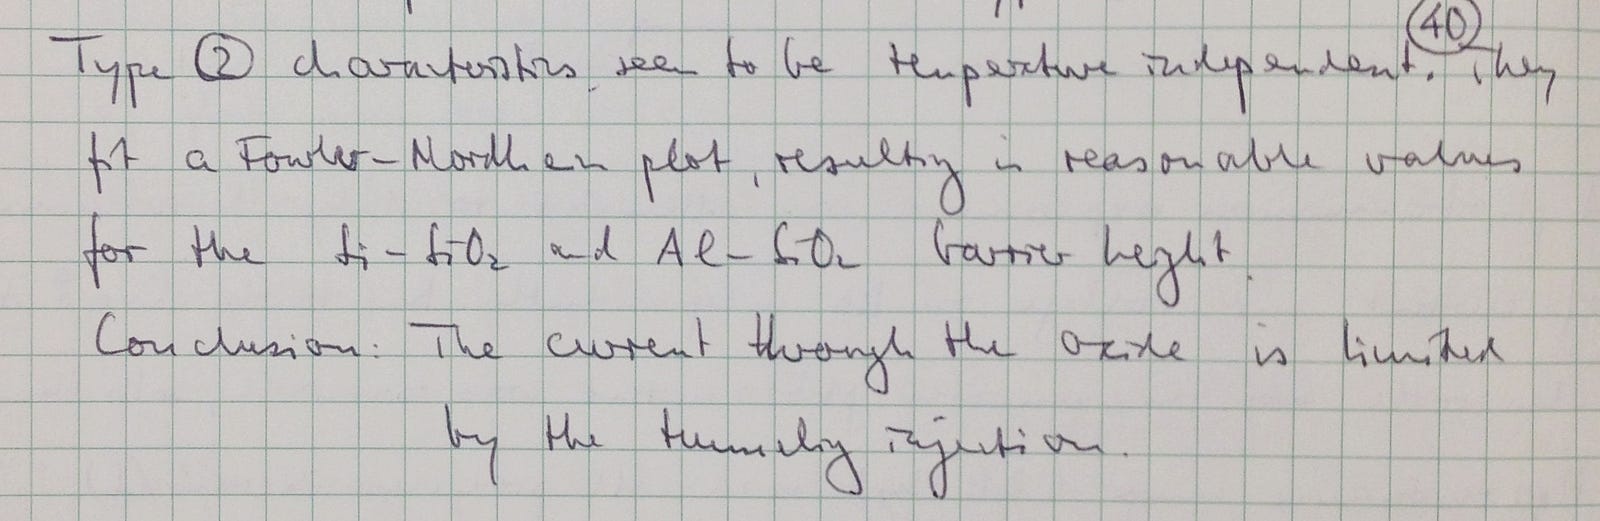 Type ② characteristics seem to be temperature independent. ㊵ They
fit a Fowler-Nordheim plot, resulting in reasonable values
for the Si-SiO₂ and Al-SiO₂ barrier height.
Conclusion: The current through the oxide is limited
by the tunneling injection.